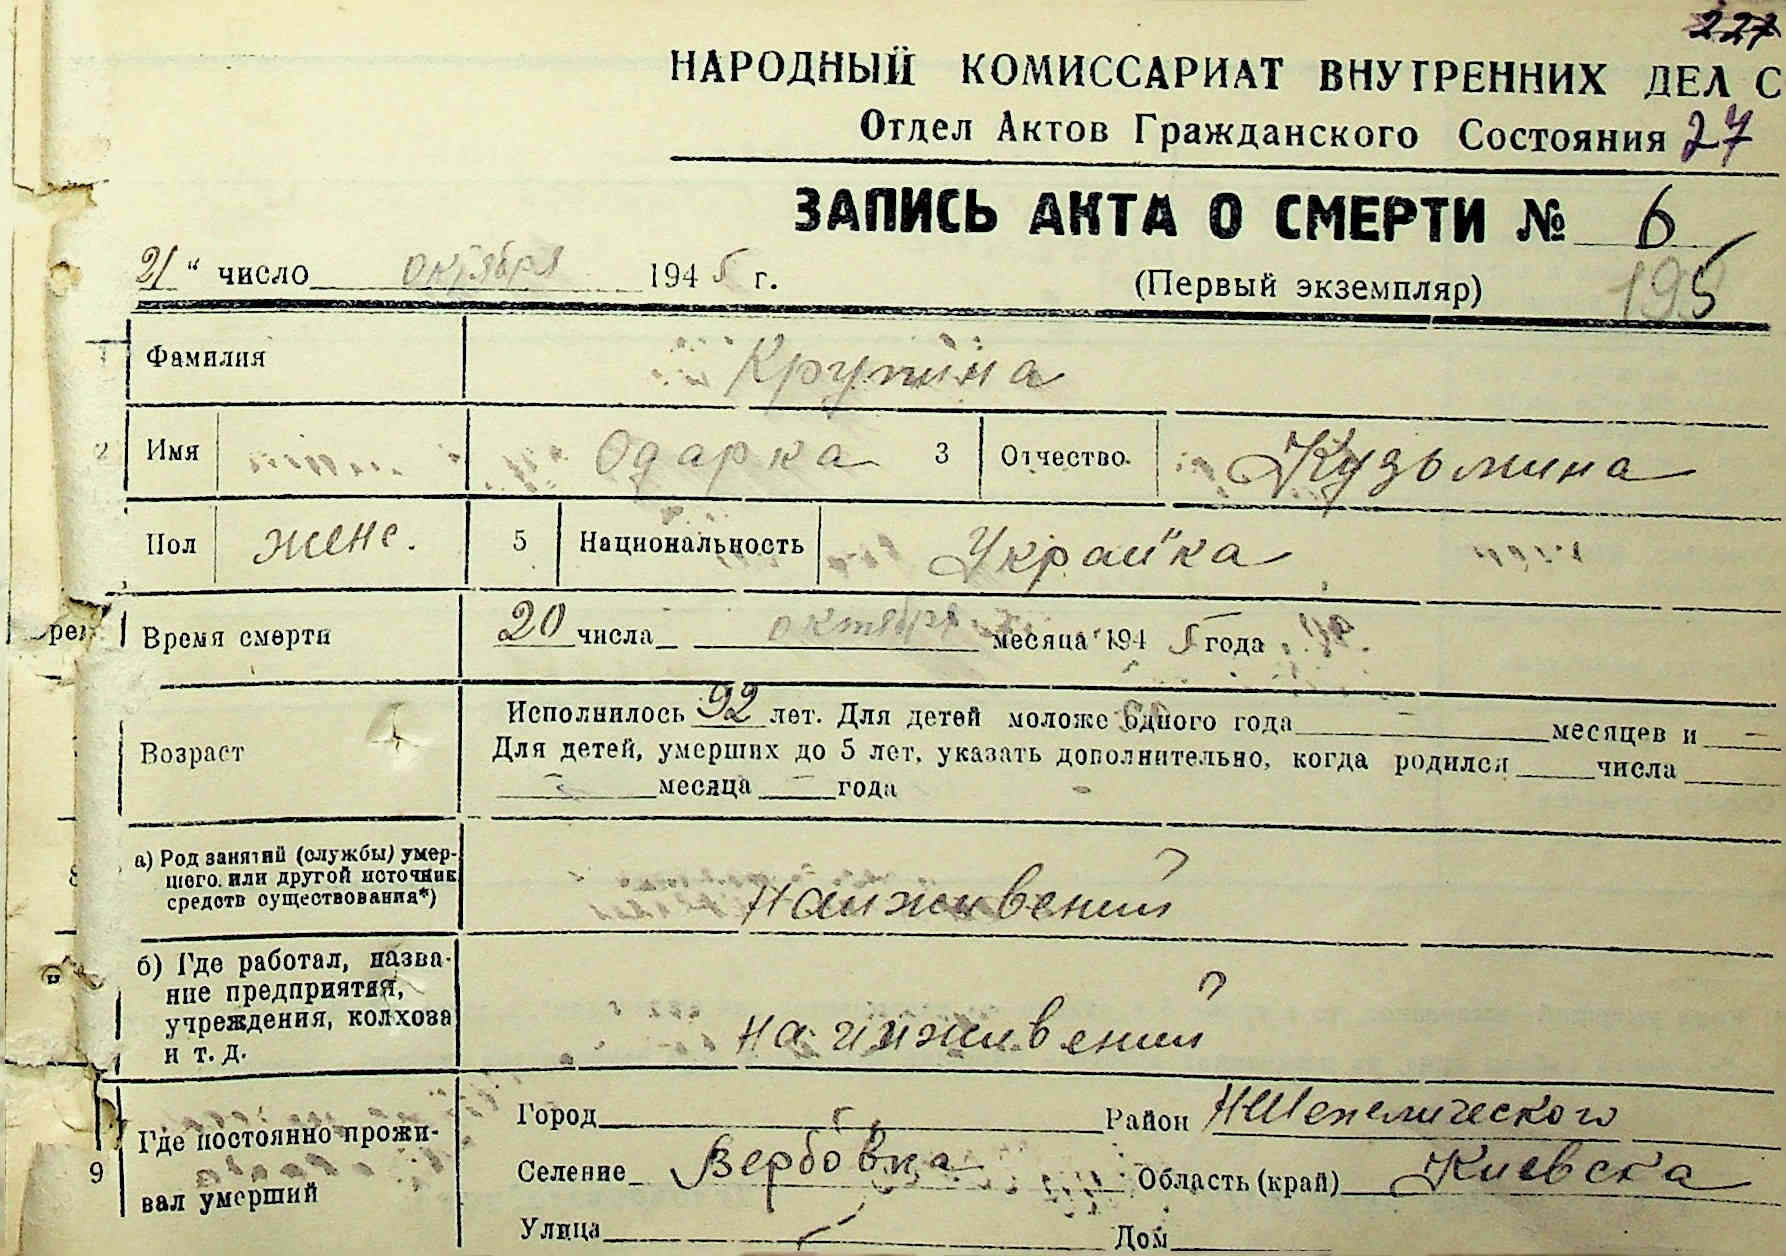 227
НАРОДНЫЙ КОМИССАРИАТ ВНУТРЕННИХ ДЕЛ С
Отдел Актов Гражданского Состояния 27
ЗАПИСЬ АКТА О СМЕРТИ № 6
21 " число октября 1945 г. (Первый экземпляр) 195
1 Фамилия Крупина
2 Имя Одарка 3 Отчество Кузьмина
Пол женс. 5 Национальность Украйка
Время смерти 20 числа октября месяца 1945 года
Исполнилось 92 лет. Для детей моложе одного года — месяцев и —
Возраст Для детей, умерших до 5 лет, указать дополнительно, когда родился числа
— месяца — года
а) Род занятий (службы) умер-
шего или другой источник
средств существования*)
на иживении
б) Где работал, назва-
ние предприятия,
учреждения, колхоза
и т. д.
на иживении
9 Где постоянно прожи-
вал умерший
Город Район
Селение Вербовка Область (край) Киевска
Улица — Дом